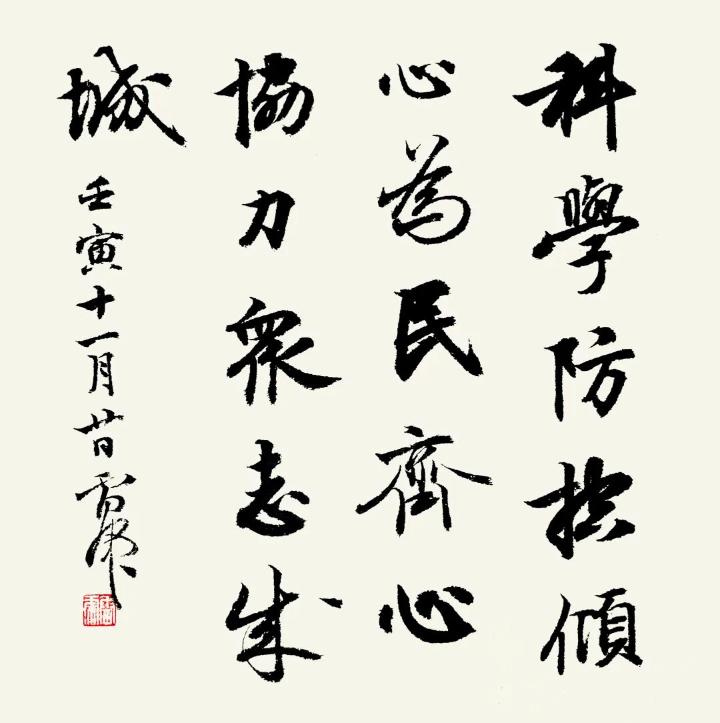 科學防控傾
心為民齊心
協力衆志成
城
壬寅十一月廿日